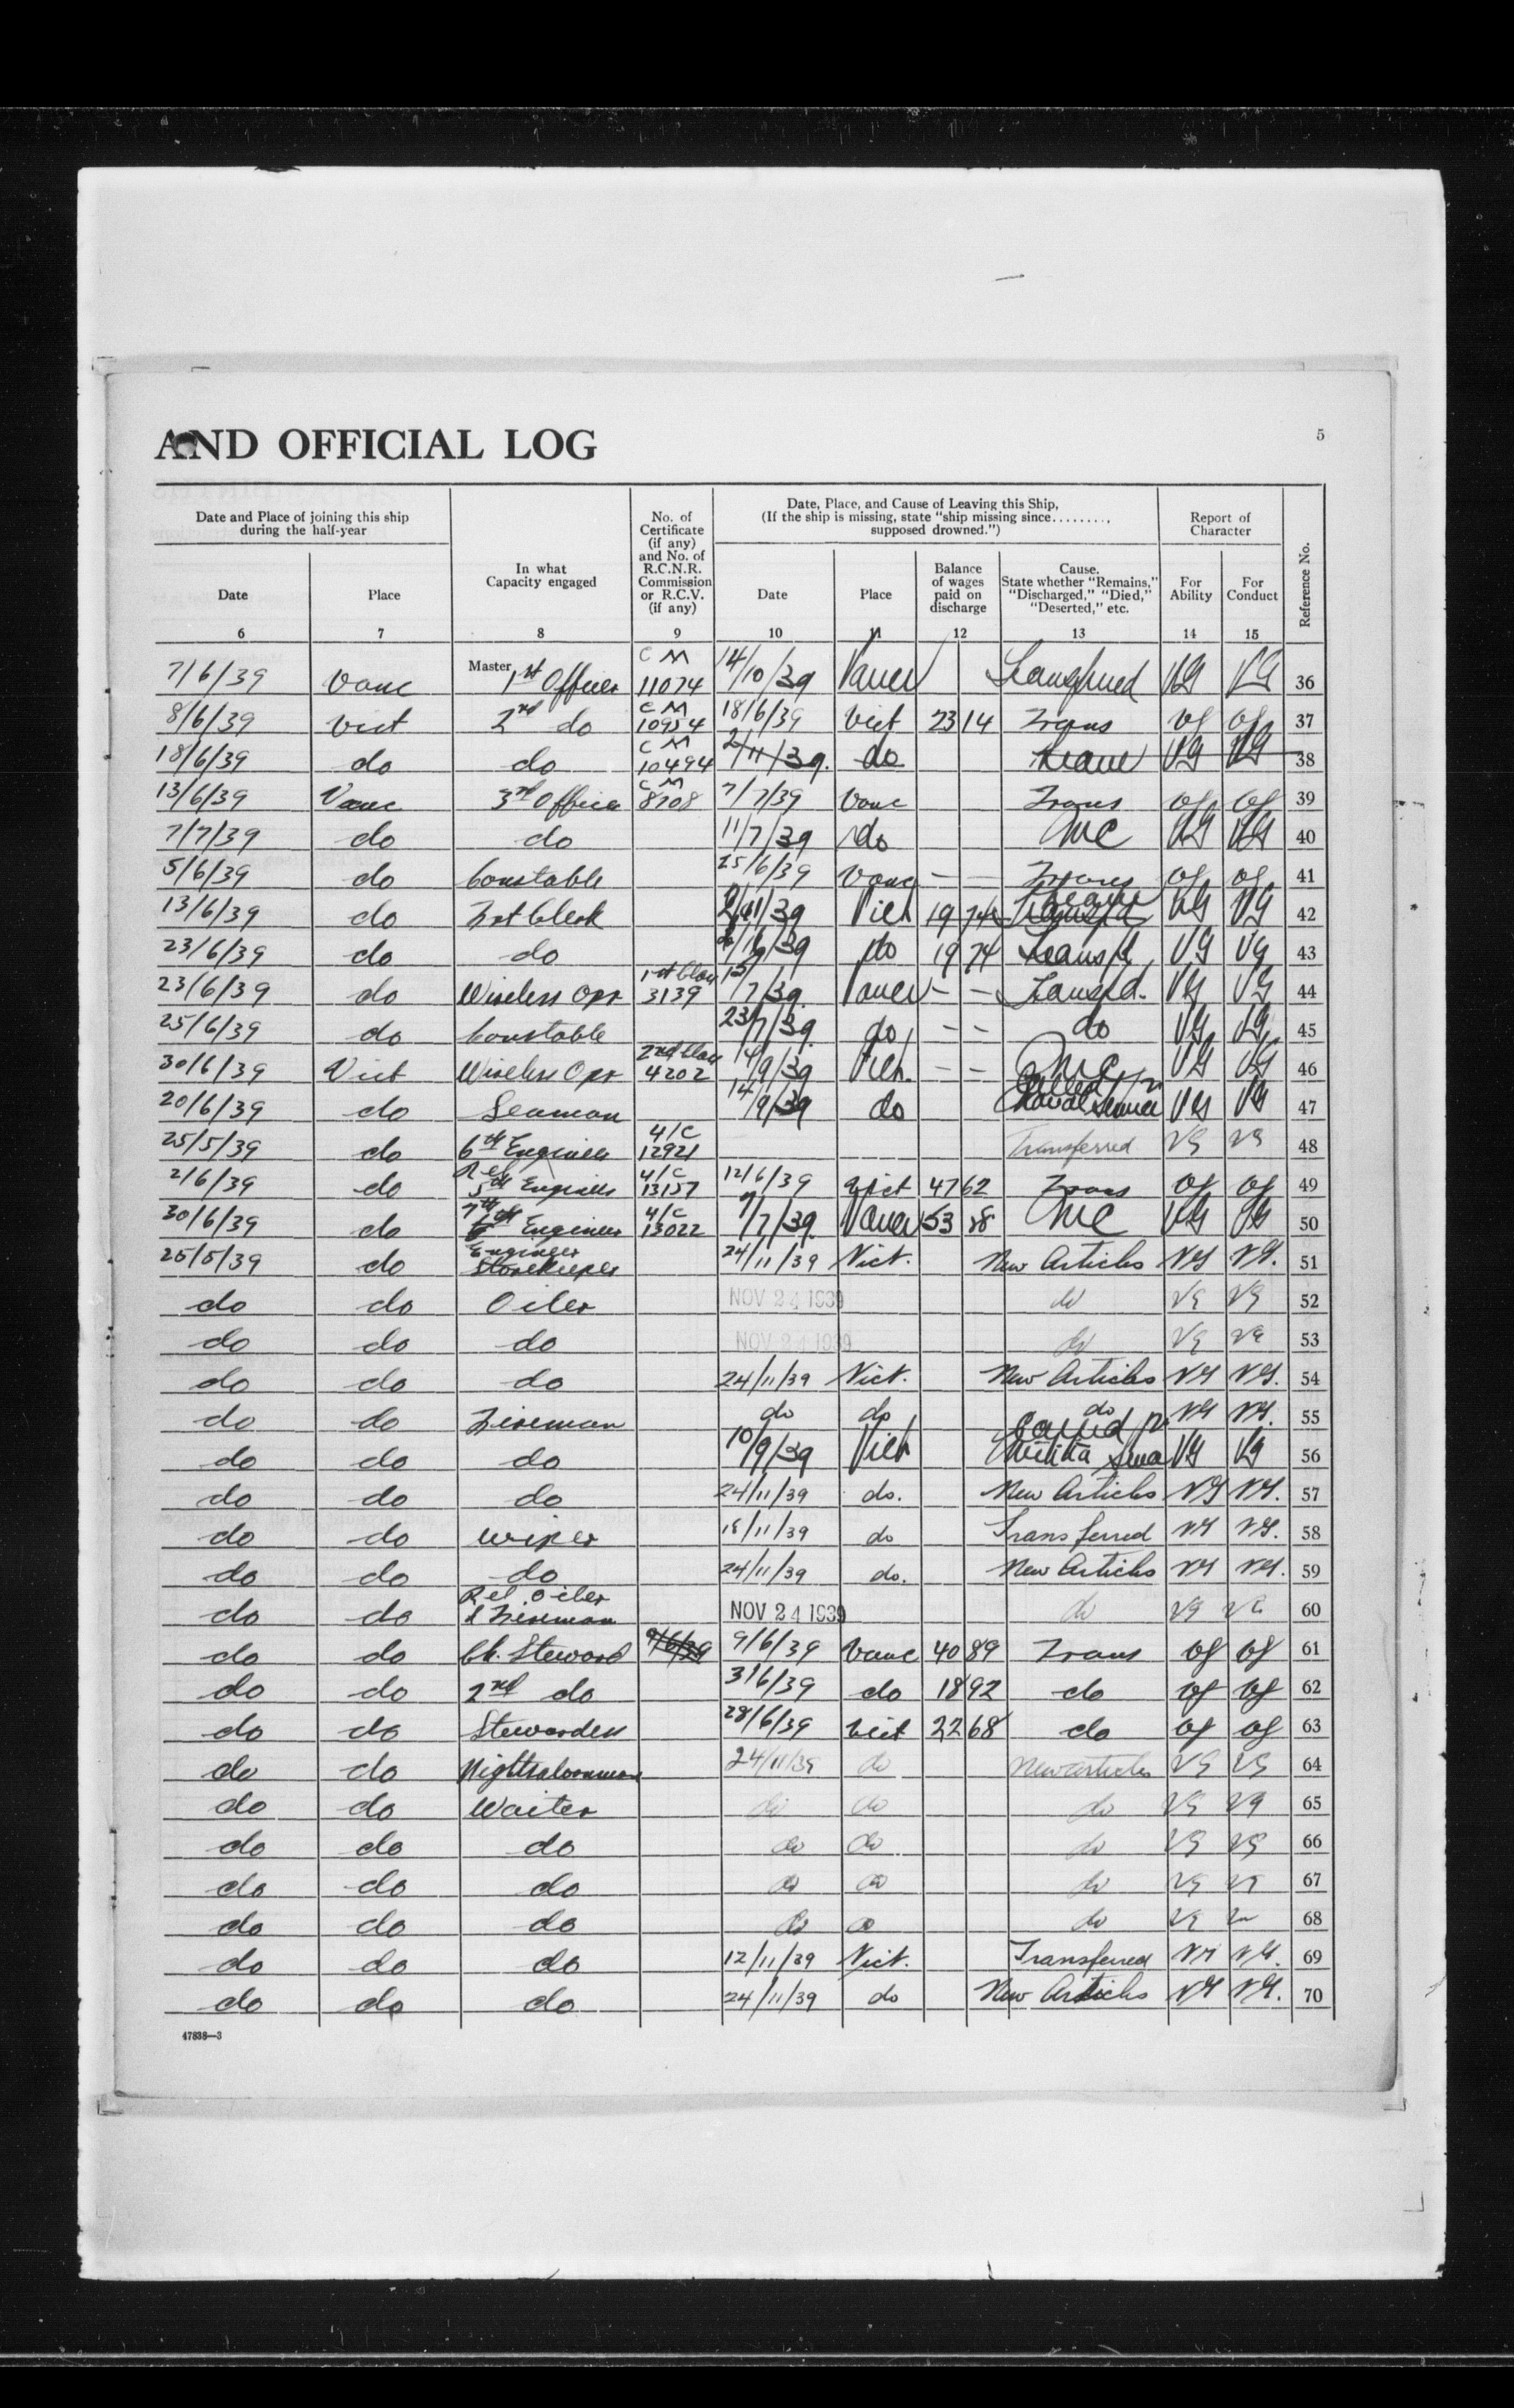 AND OFFICIAL LOG
5
Date and Place of joining this ship during the half-year
In what Capacity engaged
No. of Certificate (if any) and No. of R.C.N.R. Commission or R.C.V. (if any)
Date, Place, and Cause of Leaving this Ship, (If the ship is missing, state "ship missing since........, supposed drowned.")
Report of Character
Reference No.
Date
Place
Date
Place
Balance of wages paid on discharge
Cause. State whether "Remains," "Discharged," "Died," "Deserted," etc.
For Ability
For Conduct
6 7 8 9 10 11 12 13 14 15
7/6/39 Vanc Master 1st Officer CM 11074 14/10/39 Vancr Transferred VG VG 36
8/6/39 Vict 2nd do CM 10954 18/6/39 Vict 23 14 Trans VG VG 37
18/6/39 do do CM 10494 2/11/39. do Leave VG VG 38
13/6/39 Vanc 3rd Officer CM 8708 7/7/39 Vanc Trans VG VG 39
7/7/39 do do 11/7/39 do MC VG VG 40
5/6/39 do Constable 25/6/39 Vanc — — Trans VG VG 41
13/6/39 do Frt Clerk 2/11/39 Vict 19 74 Leave VG VG 42
23/6/39 do do do 19 74 Transfd VG VG 43
23/6/39 do Wireless Opr 1st Class 3139 15/7/39 Vancr — — Transfd. VG VG 44
25/6/39 do Constable 23/7/39 do — — do VG VG 45
30/6/39 Vict Wireless Opr 2nd Class 4202 14/9/39 Vict. — — MC VG VG 46
20/6/39 do Seaman 14/9/39 do Called Naval Service VG VG 47
25/5/39 do 6th Engineer 4/C 12921 Transferred VG VG 48
2/6/39 do Rel 5th Engineer 4/C 13157 12/6/39 Vict 47 62 Trans VG VG 49
30/6/39 do 7th Engineer 4/C 13022 7/7/39. Vancr 53 88 MC VG VG 50
25/5/39 do Engineer Storekeeper 24/11/39 Vict. New Articles VG VG. 51
do do Oiler NOV 24 1939 do VG VG 52
do do do NOV 24 1939 do VG VG 53
do do do 24/11/39 Vict. New Articles VG VG. 54
do do Fireman do do do VG VG. 55
do do do 10/9/39 Vict Called Militia VG VG 56
do do do 24/11/39 do. New Articles VG VG. 57
do do Wiper 18/11/39 do Transferred VG VG. 58
do do do 24/11/39 do. New Articles VG VG. 59
do do Rel. Oiler & Fireman NOV 24 1939 do VG VG 60
do do Ch. Steward 9/6/39 9/6/39 Vanc 40 89 Trans VG VG 61
do do 2nd do 3/6/39 do 18 92 do VG VG 62
do do Stewardess 28/6/39 Vict 22 68 do VG VG 63
do do Nightsaloonman 24/11/39 do New articles VG VG 64
do do Waiter do do do VG VG 65
do do do do do do VG VG 66
do do do do do do VG VG 67
do do do do do do VG 68
do do do 12/11/39 Vict. Transferred VG VG. 69
do do do 24/11/39 do New Articles VG VG. 70
47838—3